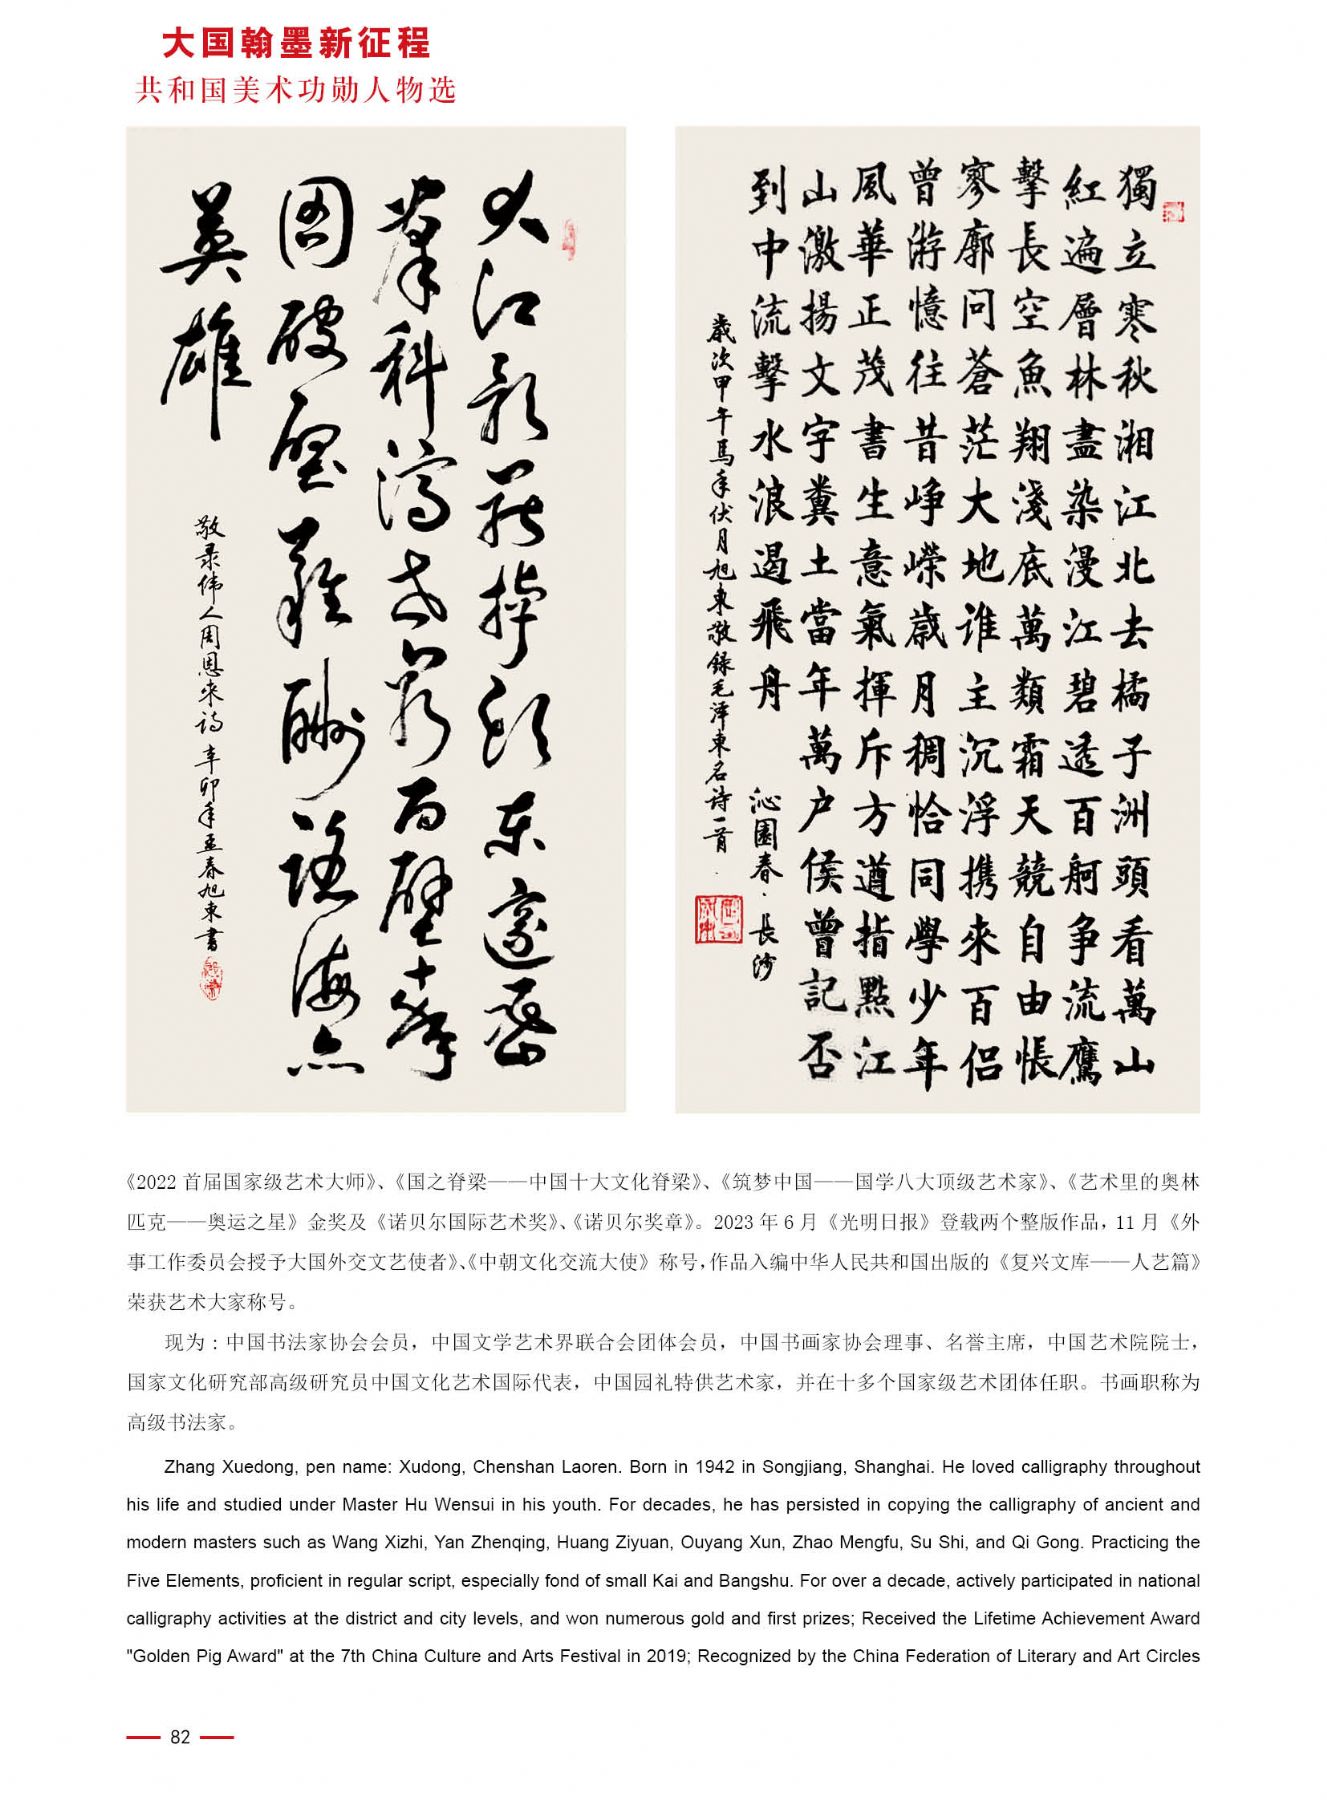 大国翰墨新征程
共和国美术功勋人物选
大江歌罷掉頭東邃密
羣科濟世窮面壁十年
圖破壁難酬蹈海亦
英雄
敬录伟人周恩来诗 辛卯年孟春旭東書
獨立寒秋湘江北去橘子洲頭看萬山
紅遍層林盡染漫江碧透百舸争流鷹
擊長空魚翔淺底萬類霜天競自由悵
寥廓問蒼茫大地谁主沉浮携來百侣
曾游憶往昔崢嶸歲月稠恰同學少年
風華正茂書生意氣揮斥方遒指點江
山激揚文字糞土當年萬户侯曾記否
到中流擊水浪遏飛舟 沁園春·長沙
歲次甲午馬年伏月旭東敬録毛泽東名诗一首
《2022 首届国家级艺术大师》、《国之脊梁——中国十大文化脊梁》、《筑梦中国——国学八大顶级艺术家》、《艺术里的奥林
匹克——奥运之星》金奖及《诺贝尔国际艺术奖》、《诺贝尔奖章》。2023 年 6 月《光明日报》登载两个整版作品，11 月《外
事工作委员会授予大国外交文艺使者》、《中朝文化交流大使》称号，作品入编中华人民共和国出版的《复兴文库——人艺篇》
荣获艺术大家称号。
现为：中国书法家协会会员，中国文学艺术界联合会团体会员，中国书画家协会理事、名誉主席，中国艺术院院士，
国家文化研究部高级研究员中国文化艺术国际代表，中国园礼特供艺术家，并在十多个国家级艺术团体任职。书画职称为
高级书法家。
Zhang Xuedong, pen name: Xudong, Chenshan Laoren. Born in 1942 in Songjiang, Shanghai. He loved calligraphy throughout
his life and studied under Master Hu Wensui in his youth. For decades, he has persisted in copying the calligraphy of ancient and
modern masters such as Wang Xizhi, Yan Zhenqing, Huang Ziyuan, Ouyang Xun, Zhao Mengfu, Su Shi, and Qi Gong. Practicing the
Five Elements, proficient in regular script, especially fond of small Kai and Bangshu. For over a decade, actively participated in national
calligraphy activities at the district and city levels, and won numerous gold and first prizes; Received the Lifetime Achievement Award
"Golden Pig Award" at the 7th China Culture and Arts Festival in 2019; Recognized by the China Federation of Literary and Art Circles
82